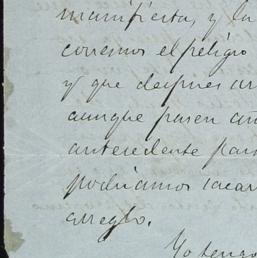 manifiesta, y la
corremos el peligro
y que despues an
aunque pasen añ
antecedente para
podriamos sacar
arreglo.
Yo tengo